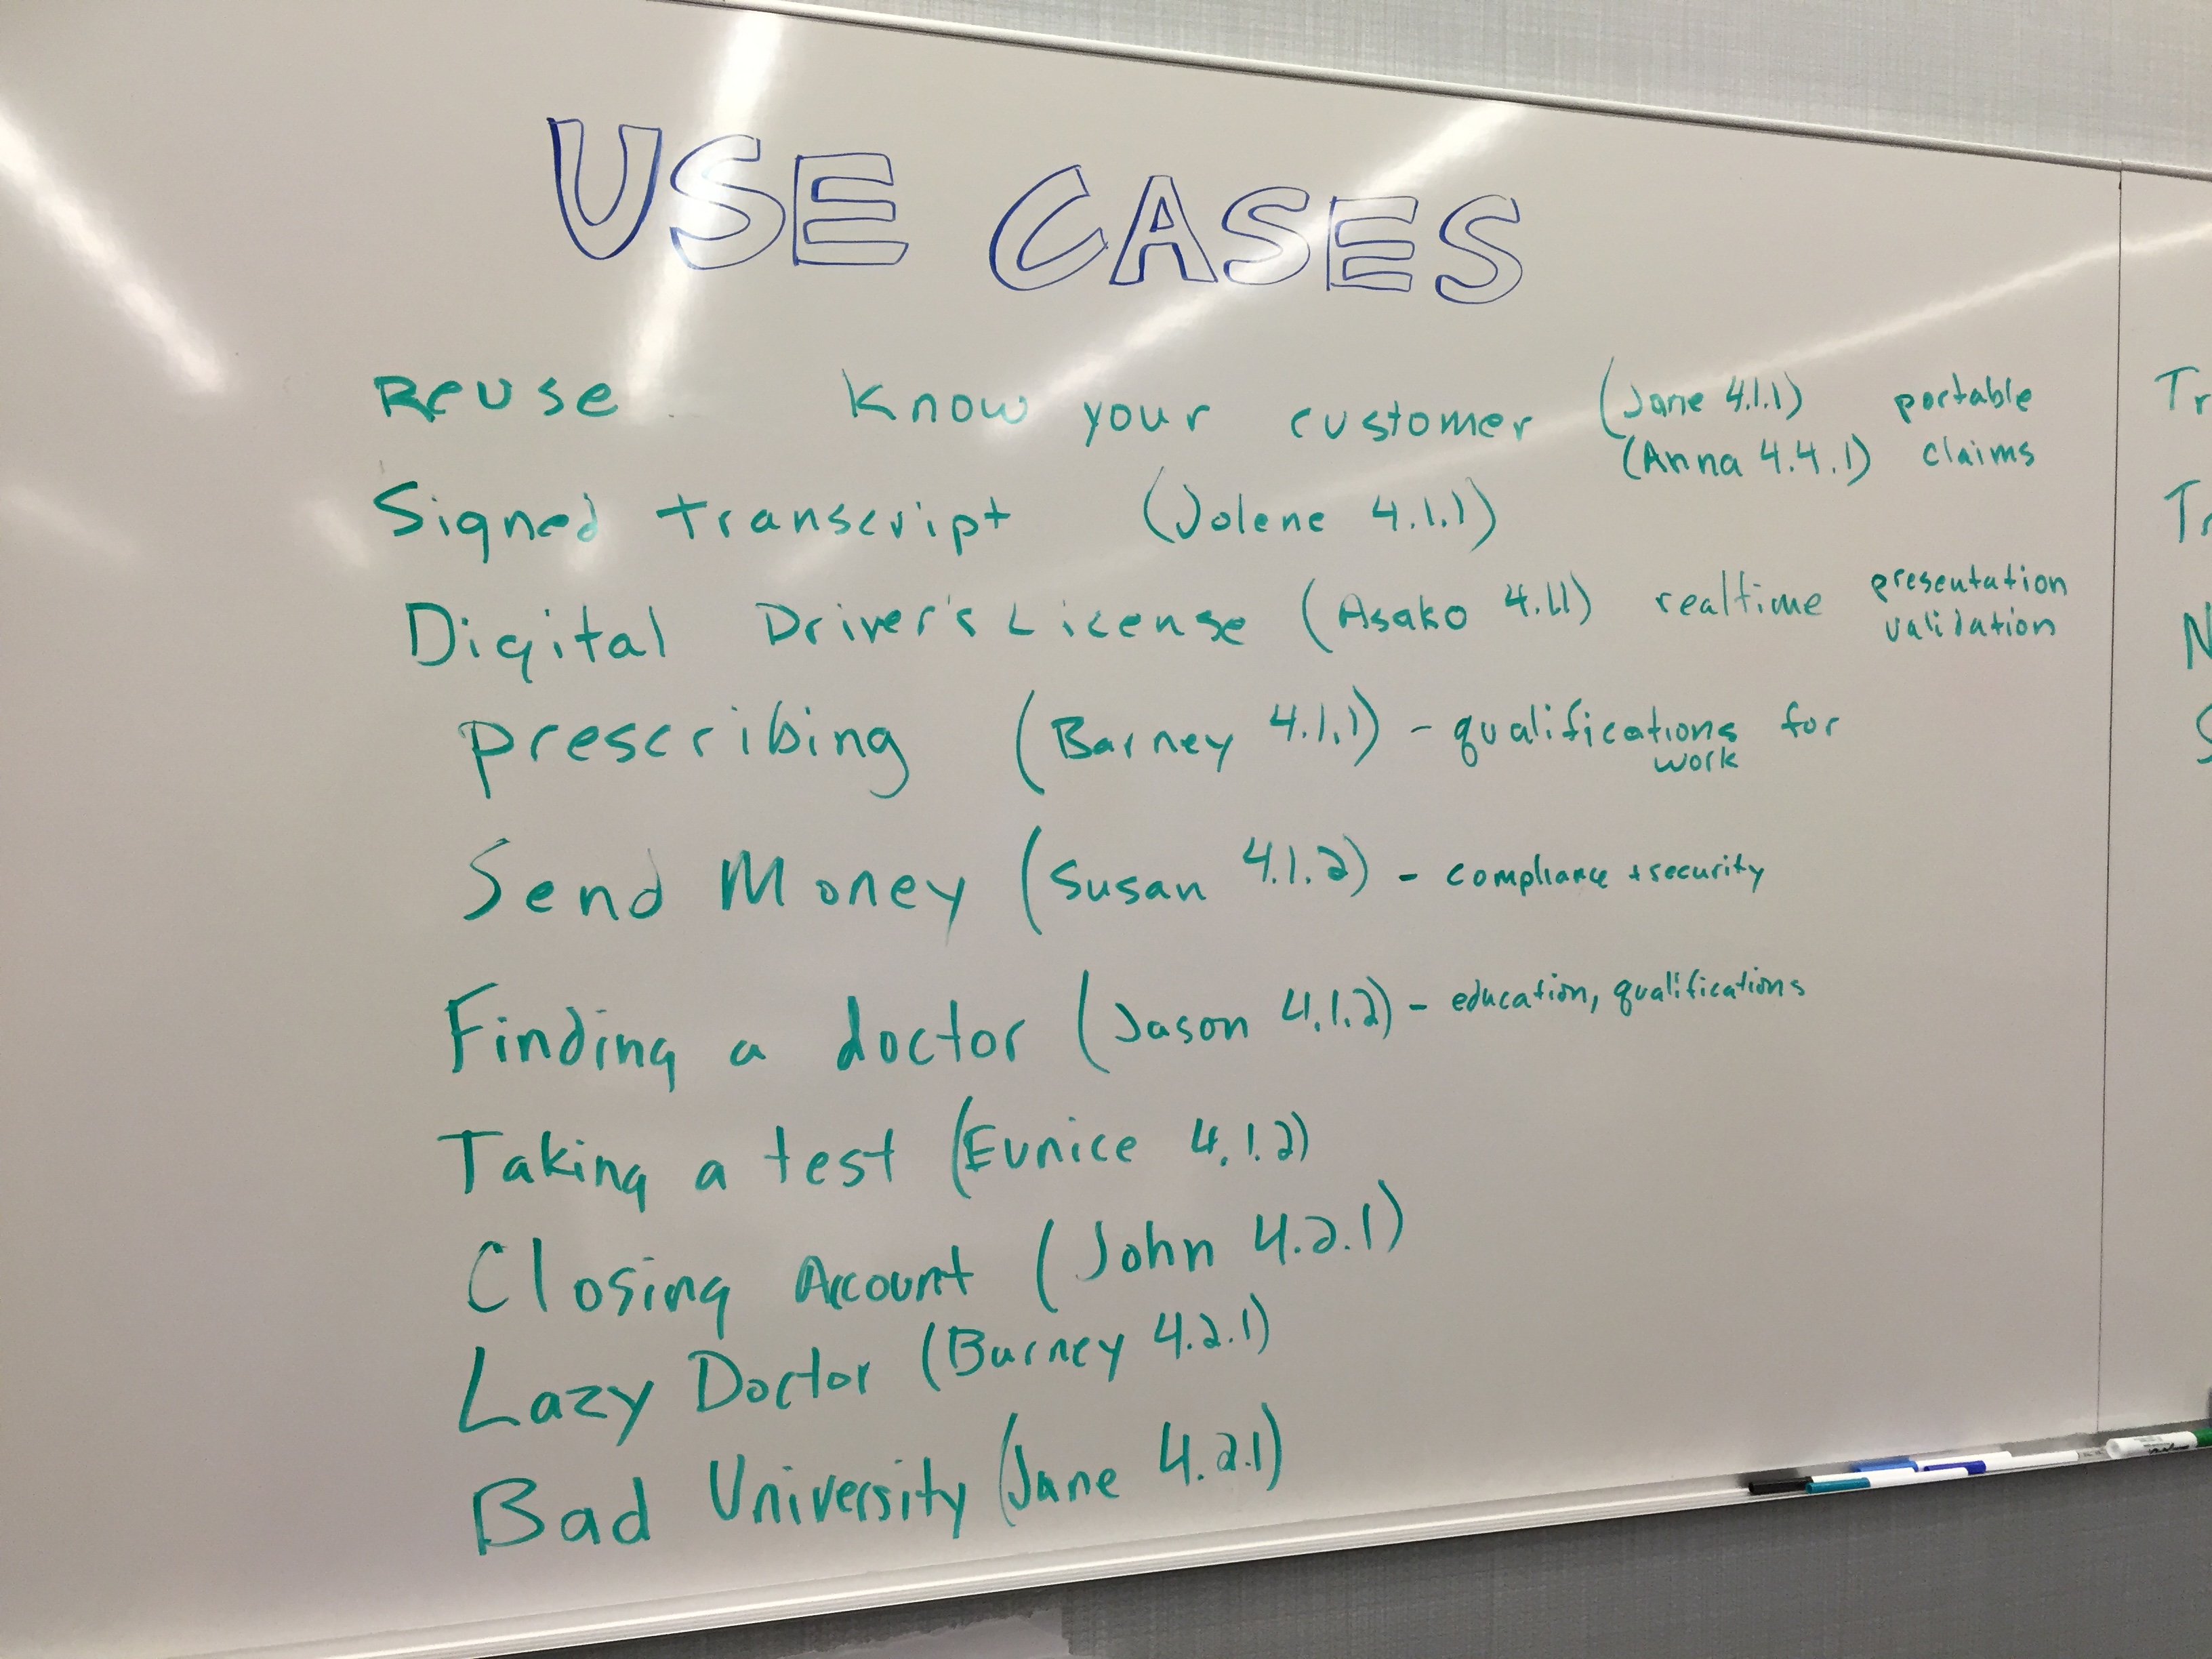 USE CASES
Reuse Know your customer (Jane 4.1.1) portable
(Anna 4.4.1) claims
Signed transcript (Jolene 4.1.1)
Digital Driver's License (Asako 4.1.1) realtime presentation
validation
Prescribing (Barney 4.1.1) - qualifications for
work
Send Money (Susan 4.1.2) - compliance + security
Finding a doctor (Jason 4.1.2) - education, qualifications
Taking a test (Eunice 4.1.2)
Closing Account (John 4.2.1)
Lazy Doctor (Barney 4.2.1)
Bad University (Jane 4.2.1)
Tr
Tr
N
S